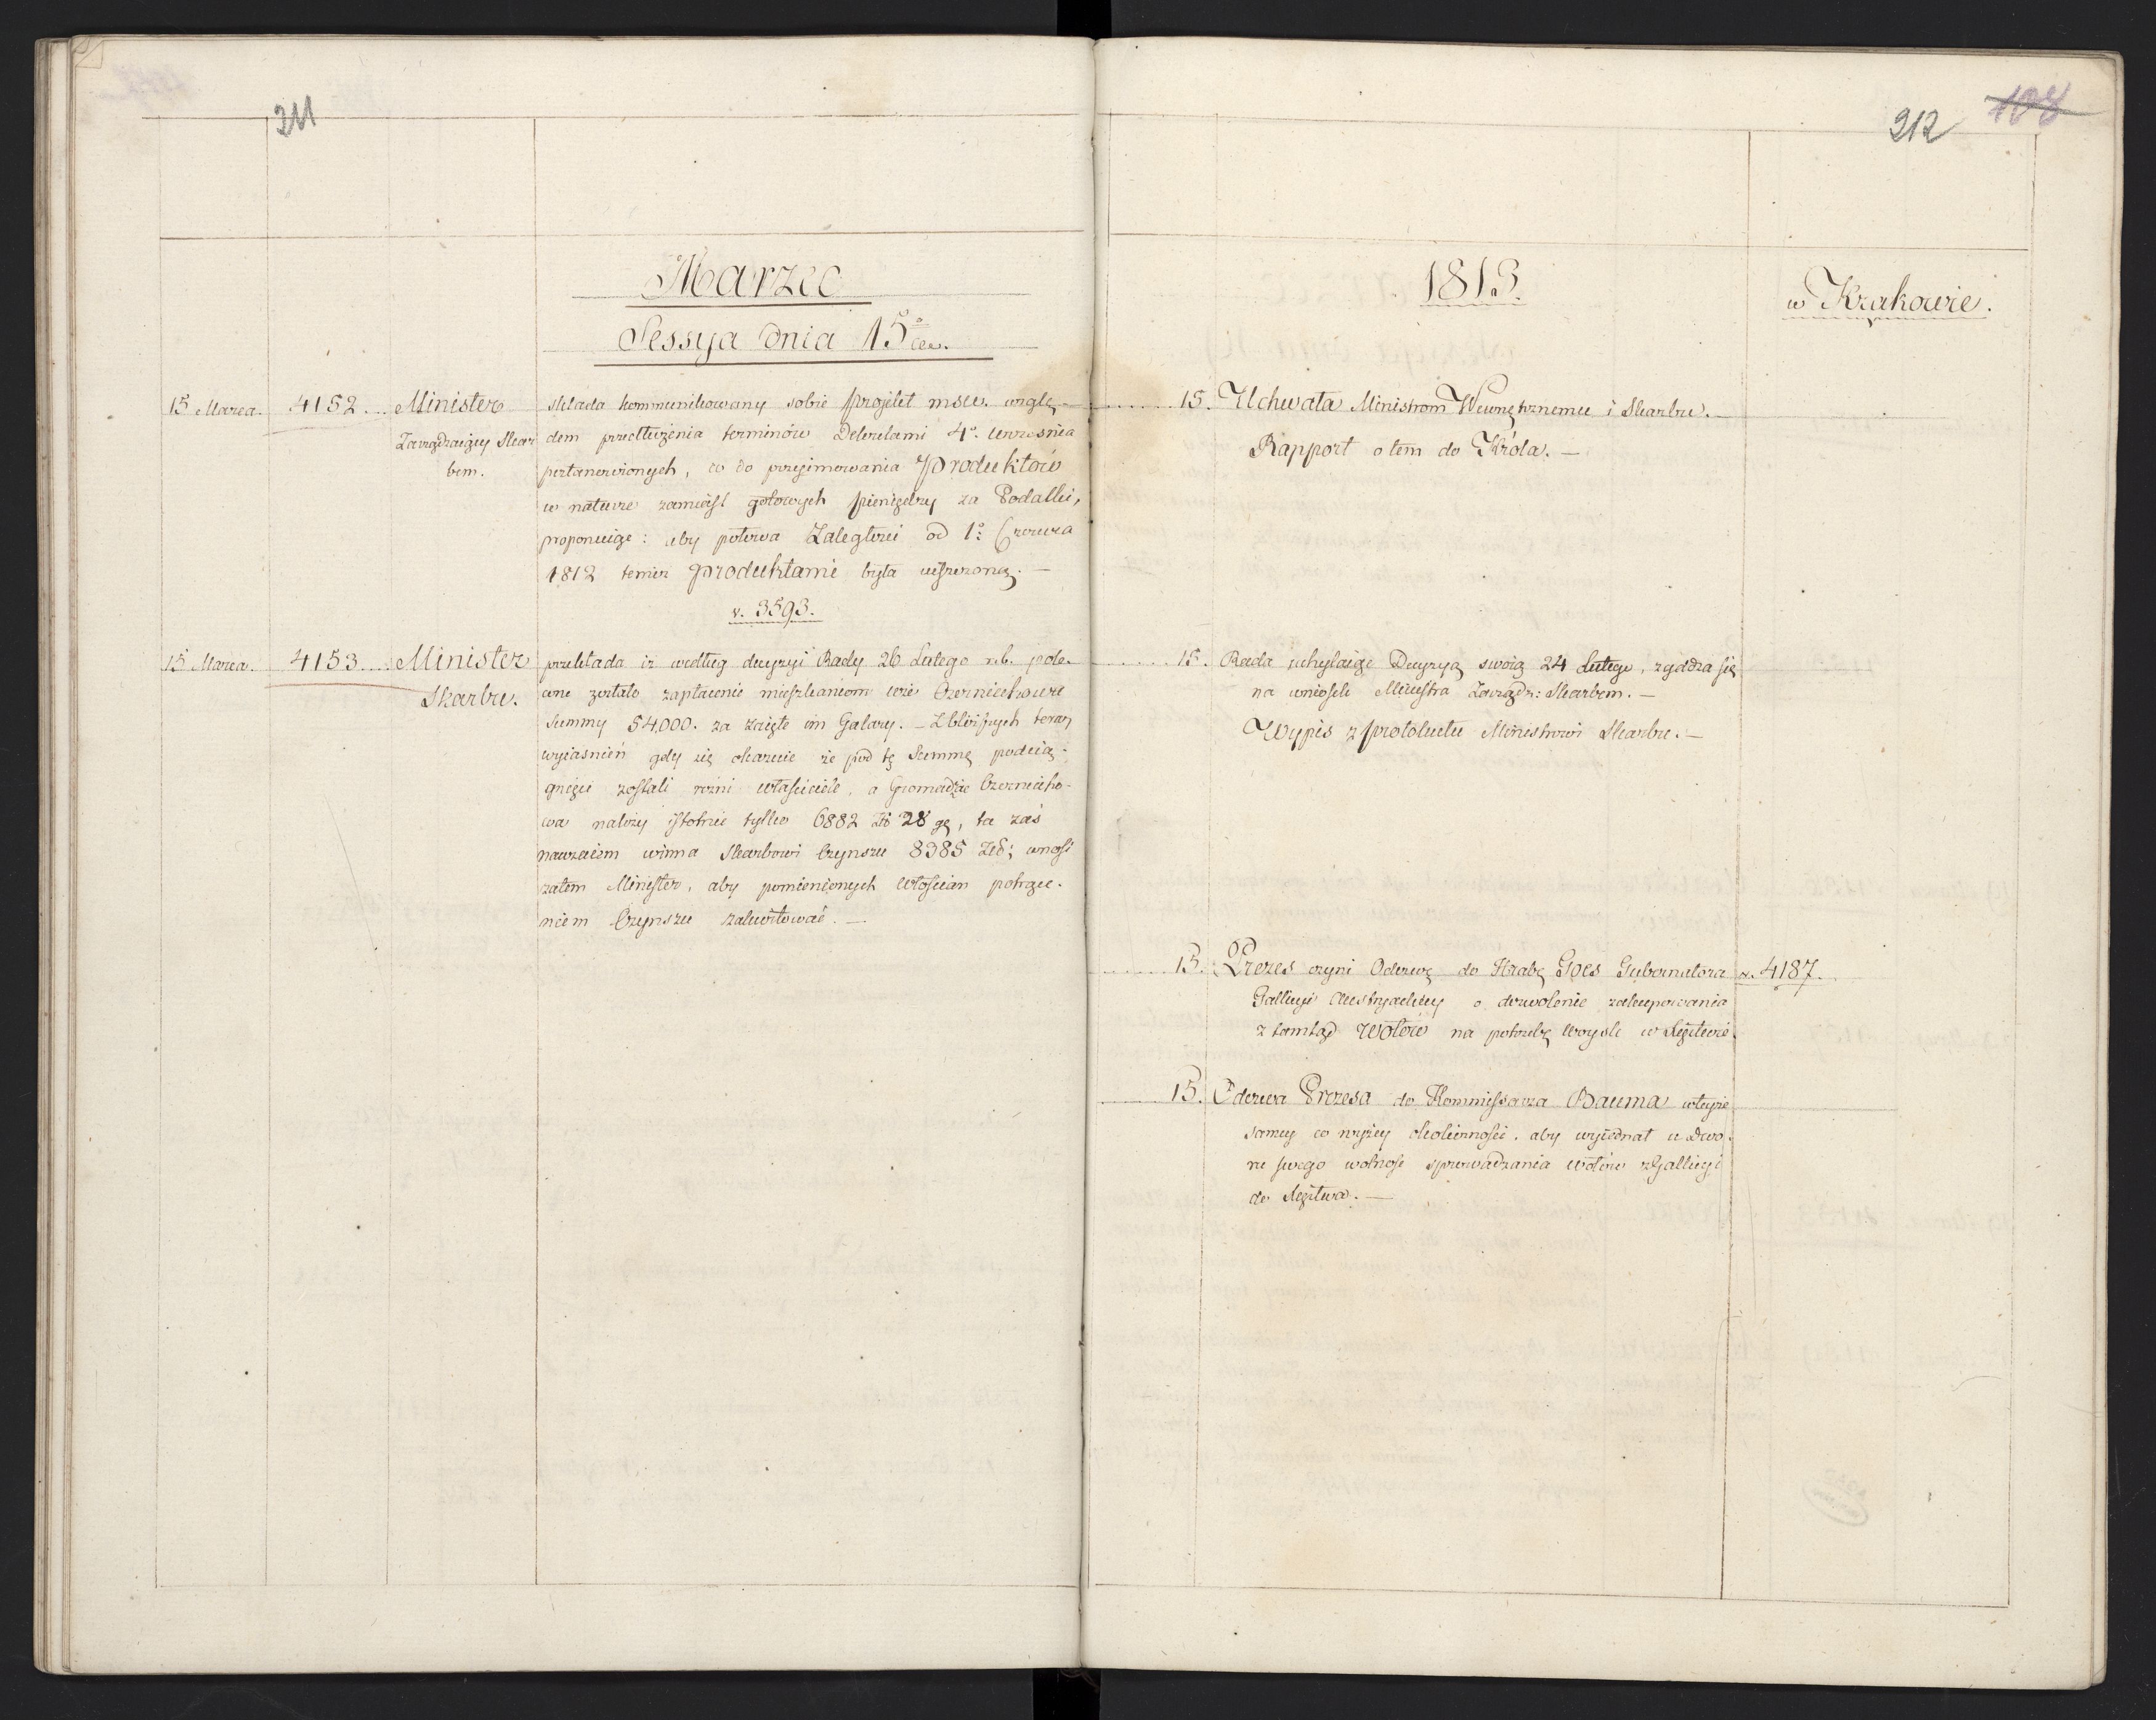 211
Marzec
Sessya dnia 15°
15 Marca. 4152... Minister składa kommunikowany sobie projekt msw. wzglę-
Zarządzaiący Skar dem przedłużenia terminów Dekretami 4°. Września
bem. postanowionych, co do przyimowania Produktów
w naturze zamiast gotowych pieniędzy za Podatki,
proponuiąc: aby połowa Zaległości od 1° Czerwca
1812 temiż produktami była uiszczoną. —
v. 3593.
15 Marca. 4153... Minister przekłada iż według decyzyi Rady 26 Lutego rb. pole-
Skarbu. cone zostało zapłacenie mieszkańcom wsie Czernichowa
Summy 54,000. za zaięte im Galary. — Z bliższych teraz
wyiasnień gdy się okazuie że pod tę Summę podcią-
gnięci zostali rożni właściciele, a Gromadzie Czernicho-
wa należy istotnie tylko 6882 Zło 28 gr, ta zaś
nawzaiem winna Skarbowi Czynszu 8385 Zło; wnosi
zatem Minister, aby pomienionych Włościan potrące-
niem Czynszu zakwitować. —
212 108
1813.
w Krakowie.
15. Uchwała Ministrom Wewnętrznemu i Skarbu. —
Rapport o tem do Króla. —
15. Rada uchylaiąc Decyzyą swoią 24 Lutego, zgadza się
na wniosek Ministra Zarządz: Skarbem. —
Wypis z protokułu Ministrowi Skarbu. —
15. Prezes czyni Odezwę do Hrabę Goes Gubernatora v. 4187.
Gallicyi Austryackiey o dozwolenie zakupowania
z tamtąd Wołów na potrzebę Woysk w Xięstwie.
15. Odezwa Prezesa do Kommissarza Bauma w teyże
samey co wyżey okoliczności, aby wyiednał u Dwo-
ru swego wolność sprowadzania wołów z Gallicyi
do Xięstwa. —